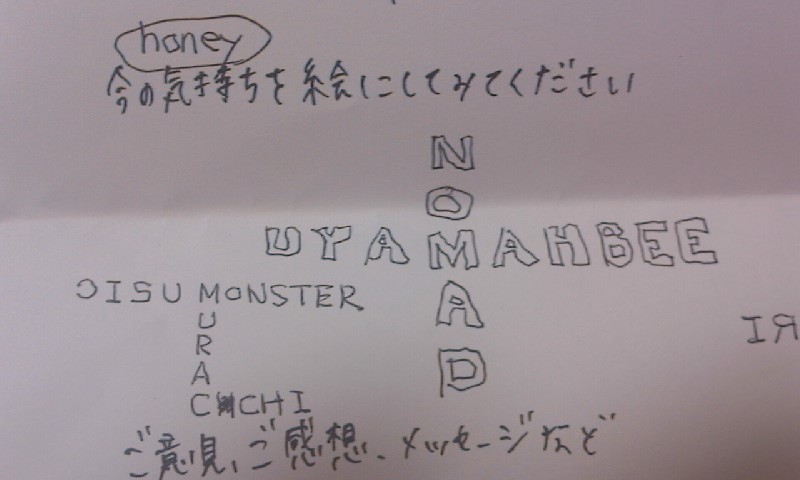 honey
今の気持ちを絵にしてみてください
NOMAD
UYAMAHBEE
ƆISUMONSTER
MURAC
CHI
IЯ
ご意見、ご感想、メッセージなど